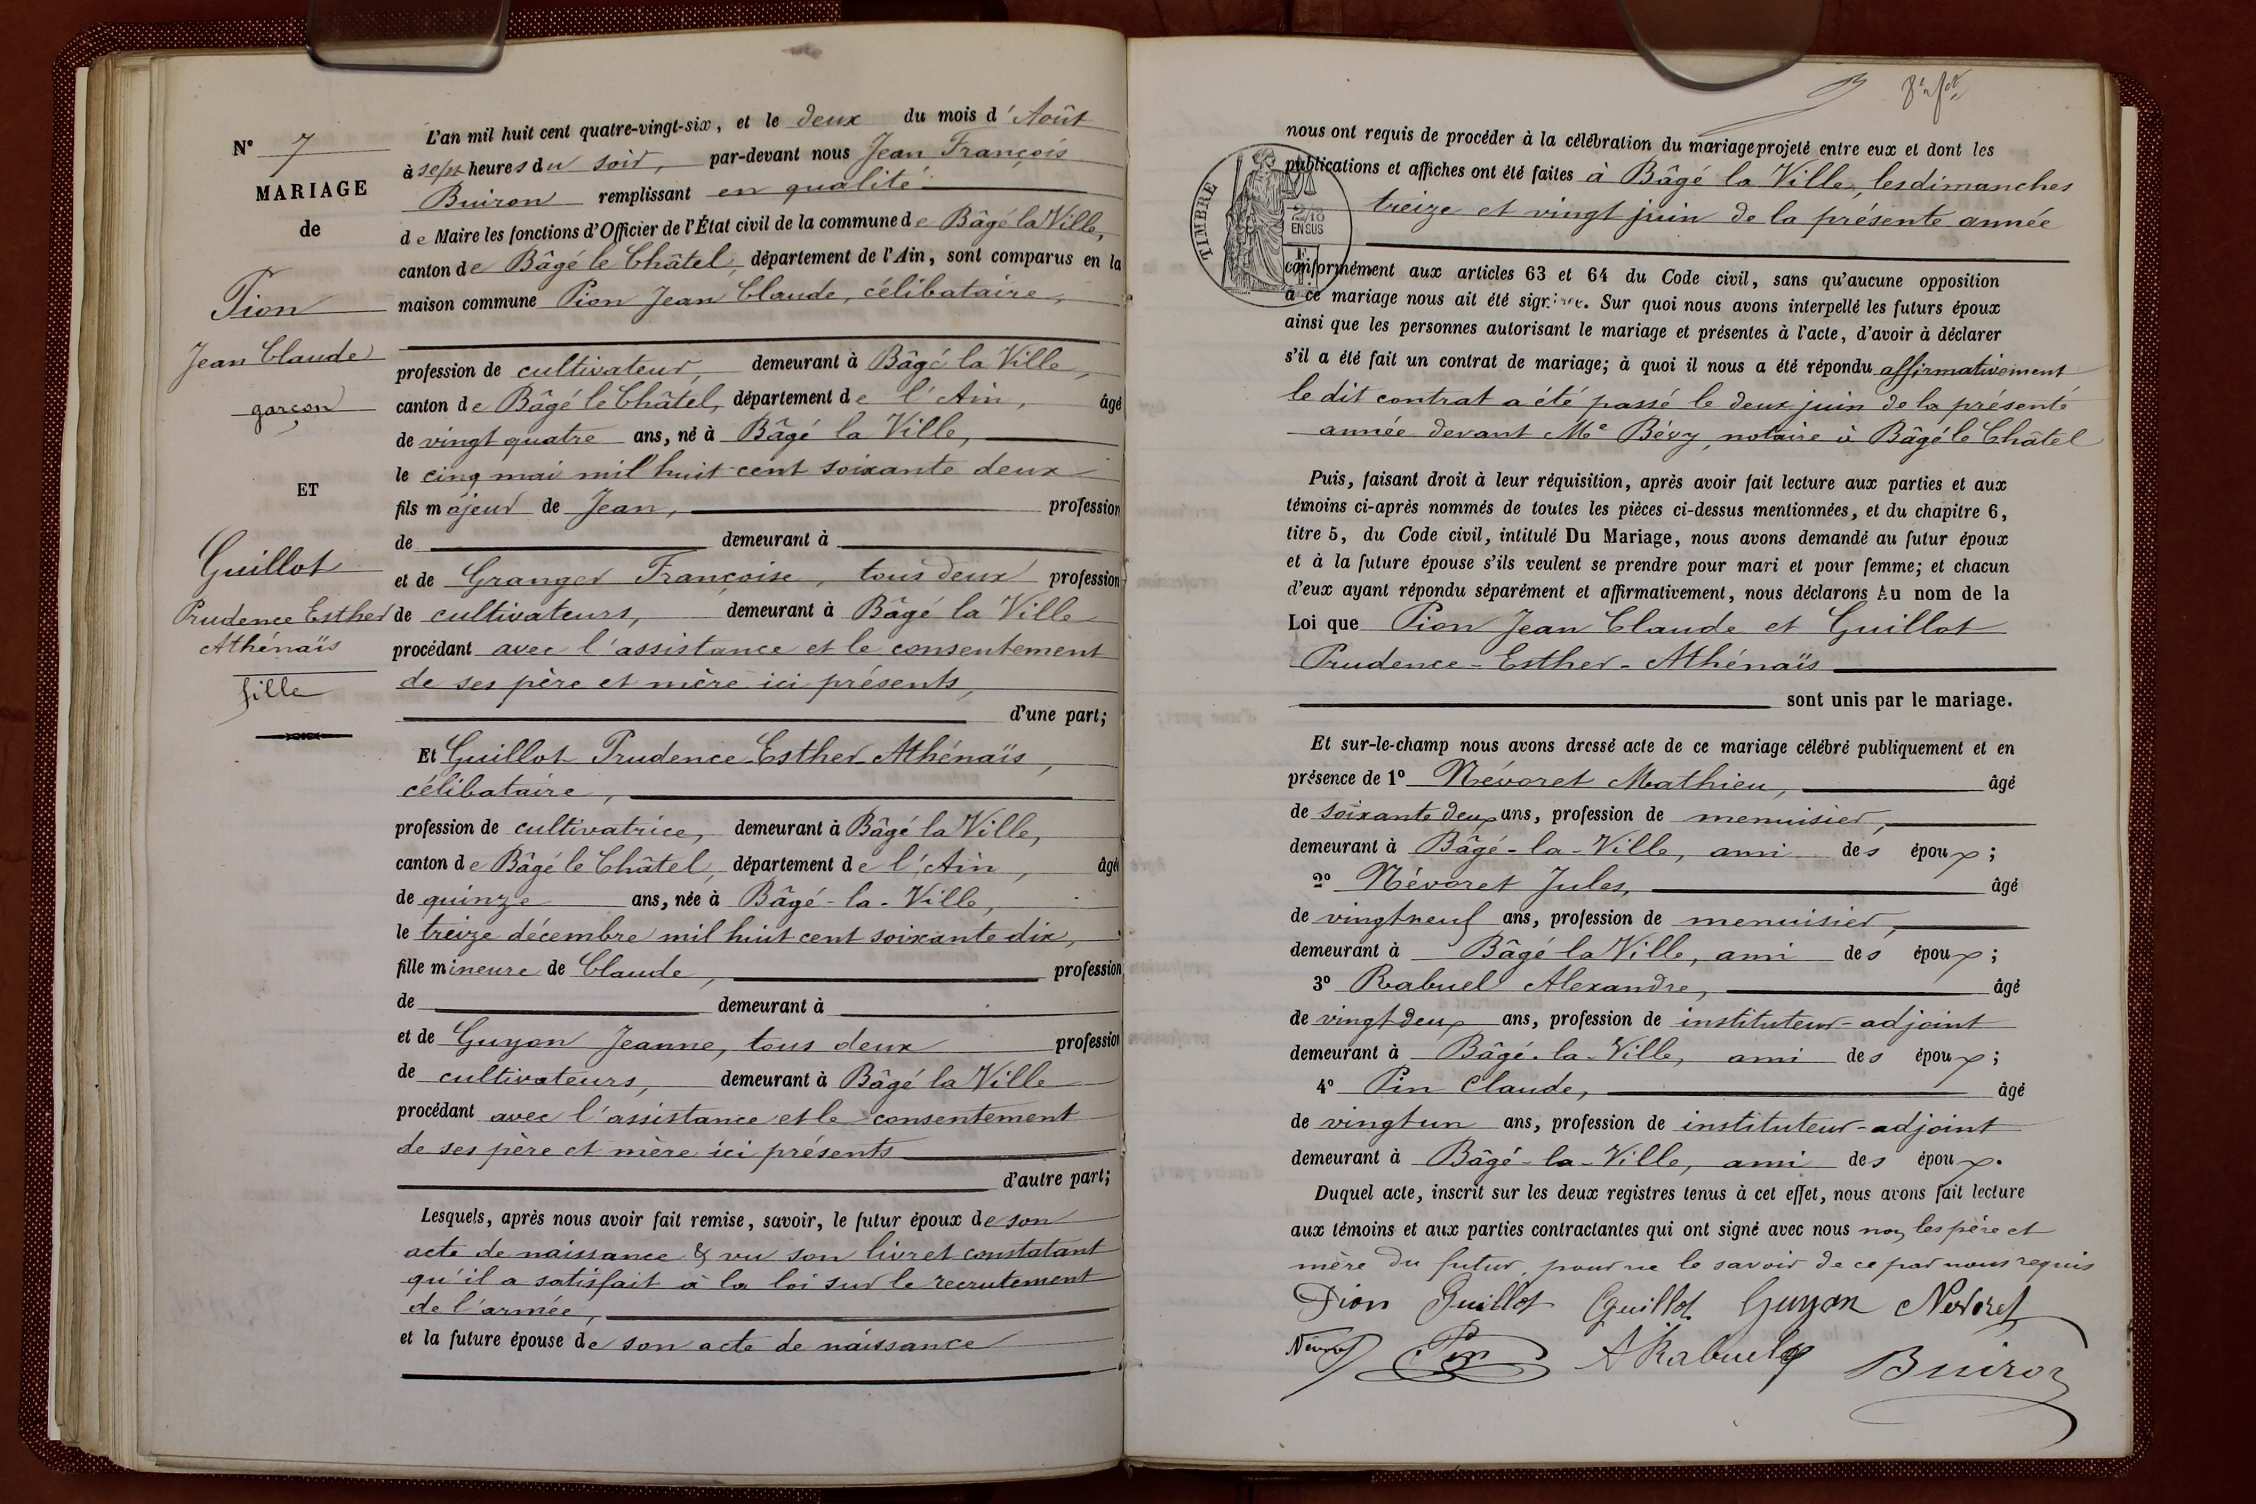 N° 7
MARIAGE
de
Pion
Jean Claude
garçon
ET
Guillot
Prudence Esther
Athénaïs
fille
L'an mil huit cent quatre-vingt-six, et le deux du mois d'Août
à sept heures du soir, par-devant nous Jean François
Buiron remplissant en qualité
de Maire les fonctions d'Officier de l'État civil de la commune de Bâgé la Ville,
canton de Bâgé le Châtel, département de l'Ain, sont comparus en la
maison commune Pion Jean Claude, célibataire,
profession de cultivateur, demeurant à Bâgé la Ville,
canton de Bâgé le Châtel, département de l'Ain, âgé
de vingt quatre ans, né à Bâgé la Ville,
le cinq mai mil huit cent soixante deux
fils majeur de Jean, profession
de demeurant à
et de Granger Françoise, tous deux profession
de cultivateurs, demeurant à Bâgé la Ville
procédant avec l'assistance et le consentement
de ses père et mère ici présents,
d'une part;
Et Guillot Prudence Esther Athénaïs,
célibataire,
profession de cultivatrice, demeurant à Bâgé la Ville,
canton de Bâgé le Châtel, département de l'Ain, âgée
de quinze ans, née à Bâgé-la-Ville,
le treize décembre mil huit cent soixante dix,
fille mineure de Claude, profession
de demeurant à
et de Guyon Jeanne, tous deux profession
de cultivateurs, demeurant à Bâgé la Ville
procédant avec l'assistance et le consentement
de ses père et mère ici présents
d'autre part;
Lesquels, après nous avoir fait remise, savoir, le futur époux de son
acte de naissance & vu son livret constatant
qu'il a satisfait à la loi sur le recrutement
de l'armée,
et la future épouse de son acte de naissance
nous ont requis de procéder à la célébration du mariage projeté entre eux et dont les
publications et affiches ont été faites à Bâgé la Ville, les dimanches
treize et vingt juin de la présente année
TIMBRE
2/10
EN SUS
conformément aux articles 63 et 64 du Code civil, sans qu'aucune opposition
à ce mariage nous ait été signifiée. Sur quoi nous avons interpellé les futurs époux
ainsi que les personnes autorisant le mariage et présentes à l'acte, d'avoir à déclarer
s'il a été fait un contrat de mariage; à quoi il nous a été répondu affirmativement
le dit contrat a été passé le deux juin de la présente
année devant Me Bévy, notaire à Bâgé le Châtel
Puis, faisant droit à leur réquisition, après avoir fait lecture aux parties et aux
témoins ci-après nommés de toutes les pièces ci-dessus mentionnées, et du chapitre 6,
titre 5, du Code civil, intitulé Du Mariage, nous avons demandé au futur époux
et à la future épouse s'ils veulent se prendre pour mari et pour femme; et chacun
d'eux ayant répondu séparément et affirmativement, nous déclarons Au nom de la
Loi que Pion Jean Claude et Guillot
Prudence-Esther-Athénaïs
sont unis par le mariage.
Et sur-le-champ nous avons dressé acte de ce mariage célébré publiquement et en
présence de 1° Névoret Mathieu, âgé
de soixante deux ans, profession de menuisier,
demeurant à Bâgé-la-Ville, ami des époux;
2° Névoret Jules, âgé
de vingt neuf ans, profession de menuisier,
demeurant à Bâgé la Ville, ami des époux;
3° Rabuel Alexandre, âgé
de vingt deux ans, profession de instituteur-adjoint
demeurant à Bâgé-la-Ville, ami des époux;
4° Pin Claude, âgé
de vingt un ans, profession de instituteur-adjoint
demeurant à Bâgé-la-Ville, ami des époux.
Duquel acte, inscrit sur les deux registres tenus à cet effet, nous avons fait lecture
aux témoins et aux parties contractantes qui ont signé avec nous non les père et
mère du futur, pour ne le savoir de ce par nous requis
Pion Guillot Guillot Guyon Nevoret
Névoret Pin A Rabuel Buiron